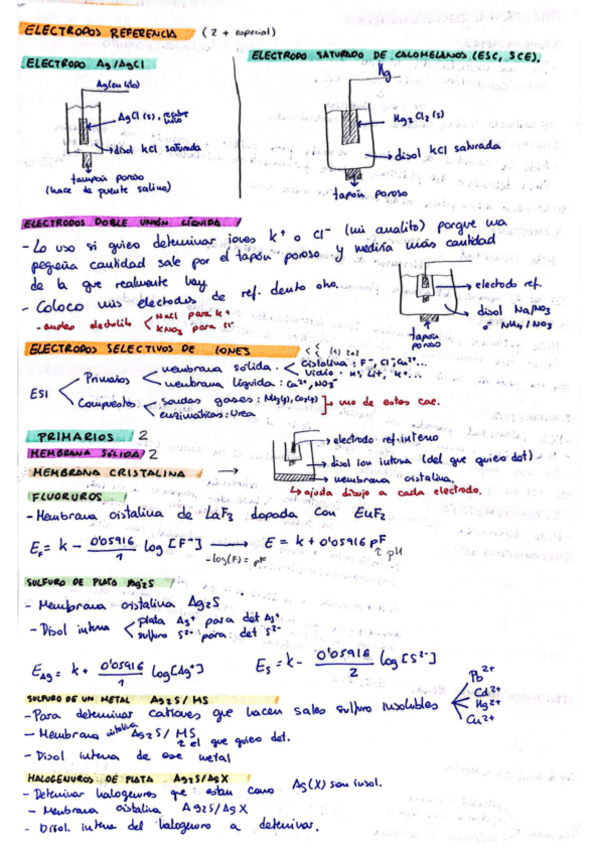 ELECTRODOS REFERENCIA (2 + especial)
ELECTRODO Ag/AgCl
Ag (en hilo)
AgCl (s), recubre hilo
disol KCl saturada
tampón poroso
(hace de puente salino)
ELECTRODO SATURADO DE CALOMELANOS (ESC, SCE).
Hg
Hg2Cl2 (s)
disol KCl saturada
tapón poroso
ELECTRODOS DOBLE UNIÓN LÍQUIDA
- Lo uso si quiero determinar iones K+ o Cl- (mi analito) porque una
pequeña cantidad sale por el tapón poroso y mediría más cantidad
de la que realmente hay
- Coloco mis electrodos de ref. dentro otro.
- nuevo electrolito NaCl para K+
KNO3 para Cl-
electrodo ref.
disol NaNO3
o NH4NO3
tapón poroso
ELECTRODOS SELECTIVOS DE IONES
ESI
Primarios
membrana sólida
Cristalina: F-, Cl-, Cu2+...
Vidrio: H+, Li+, K+...
membrana líquida: Ca2+, NO3-
Compuestos
sondas gases: NH3(g), CO2(g)
enzimáticas: Urea
uno de estos cae.
PRIMARIOS 2
MEMBRANA SÓLIDA 2
MEMBRANA CRISTALINA
electrodo ref. interno
disol ion interna (del que quiero det)
membrana cristalina.
ajusta dibujo a cada electrodo.
FLUORUROS
- Membrana cristalina de LaF3 dopada con EuF2
EF = k - 0'05916/1 log [F-] → E = k + 0'05916 pF
-log(F) = pF
↑ pH
SULFURO DE PLATA Ag2S
- Membrana cristalina Ag2S
- Disol interna plata Ag+ para det Ag+
sulfuro S2- para det S2-
EAg = k + 0'05916/1 log [Ag+] ES = k - 0'05916/2 log [S2-]
SULFURO DE UN METAL Ag2S/MS
- Para determinar cationes que hacen sales sulfuro insolubles
Pb2+
Cd2+
Hg2+
Cu2+
- Membrana cristalina Ag2S/MS
el que quiero det.
- Disol interna de ese metal
HALOGENUROS DE PLATA Ag2S/AgX
- Determinar halogenuros que estan como Ag(X) son insol.
- Membrana cristalina Ag2S/AgX
- Disol. interna del halogenuro a determinar.